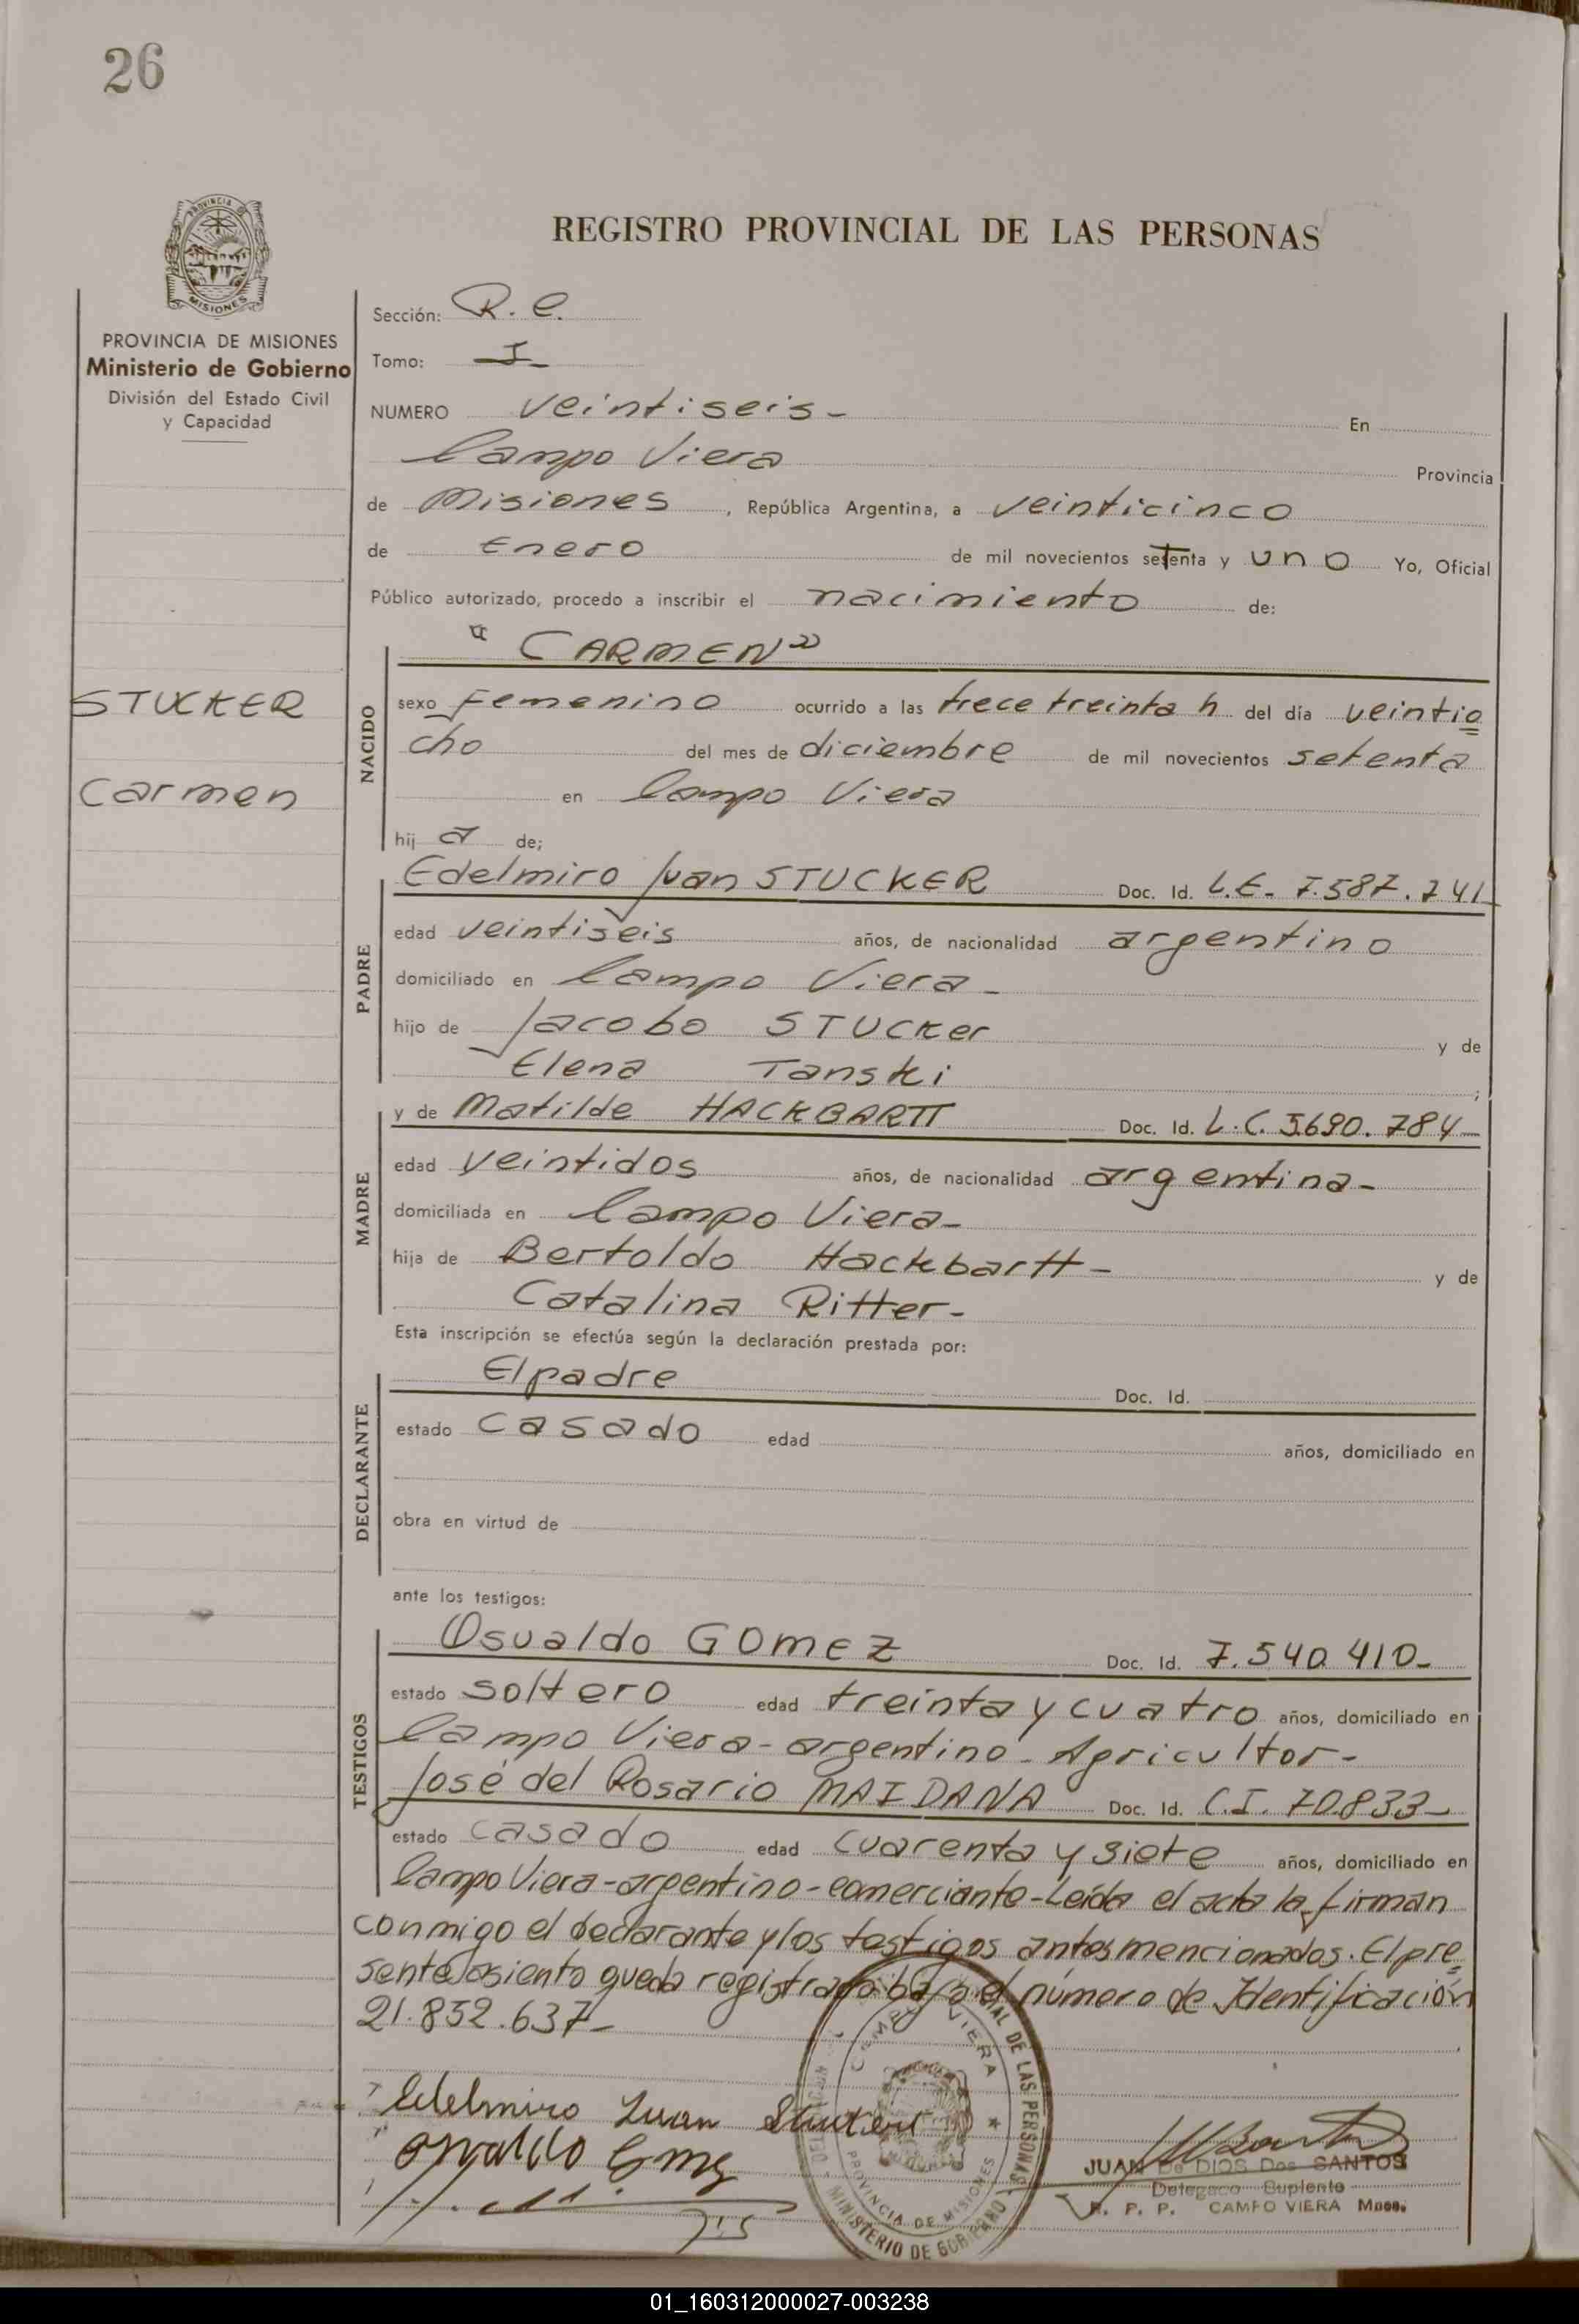 26
REGISTRO PROVINCIAL DE LAS PERSONAS
MISIONES
PROVINCIA DE MISIONES
Ministerio de Gobierno
División del Estado Civil
y Capacidad
STUCKER
Carmen
Sección: R. C.
Tomo: I
NUMERO veintiseis - En
Campo Viera Provincia
de Misiones, República Argentina, a veinticinco
de Enero de mil novecientos setenta y uno Yo, Oficial
Público autorizado, procedo a inscribir el nacimiento de:
NACIDO
"CARMEN"
sexo Femenino ocurrido a las trece treinta h del día veintio
cho del mes de diciembre de mil novecientos setenta
en Campo Viera
hij a de;
PADRE
Edelmiro Juan STUCKER Doc. Id. L.E. 7.587.741
edad veintiseis años, de nacionalidad argentino
domiciliado en Campo Viera -
hijo de Jacobo STUCKer y de
Elena Tanski ;
MADRE
y de Matilde HACKBARTT Doc. Id. L.C. 5.690.784-
edad veintidos años, de nacionalidad argentina-
domiciliada en Campo Viera-
hija de Bertoldo Hackbartt- y de
Catalina Ritter-
Esta inscripción se efectúa según la declaración prestada por:
DECLARANTE
El padre Doc. Id.
estado casado edad años, domiciliado en
obra en virtud de
ante los testigos:
TESTIGOS
Osvaldo GOMEZ Doc. Id. 7.540.410-
estado soltero edad treinta y cuatro años, domiciliado en
Campo Viera-argentino-Agricultor-
José del Rosario MAIDANA Doc. Id. C.I. 70.833-
estado casado edad cuarenta y siete años, domiciliado en
Campo Viera-argentino-comerciante-Leída el acta la firman
conmigo el declarante y los testigos antes mencionados. El pre
sente asiento queda registrado bajo el número de Identificación
21.852.637-
Edelmiro Juan Stucker
Osvaldo Gomez
CAMPO VIERA
PROVINCIA DE MISIONES
DE LAS PERSONAS
MINISTERIO DE GOBIERNO
JUAN De DIOS Dos SANTOS
Delegado Suplente
R. P. P. CAMPO VIERA Mnes.
01_160312000027-003238